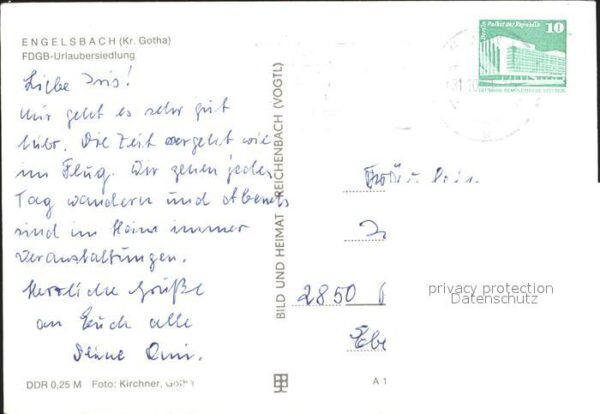 ENGELSBACH (Kr. Gotha)
FDGB-Urlaubersiedlung
Liebe Iris!
Mir geht es sehr gut
hier. Die Zeit vergeht wie
im Flug. Wir gehen jeden
Tag wandern und Abends
sind im Heim immer
Veranstaltungen.
Herzliche Grüße
an Euch alle
Deine Omi.
DDR 0,25 M Foto: Kirchner, Gotha
BILD UND HEIMAT REICHENBACH (VOGTL)
Berlin Palast der Republik
10
DEUTSCHE DEMOKRATISCHE REPUBLIK
31.10
2850
Ebe
privacy protection
Datenschutz
A 1